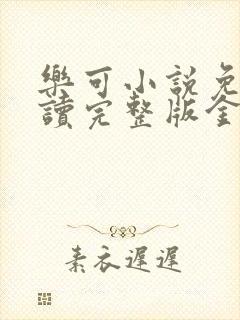 樂可小說免
讀完整版全
素衣遲遲